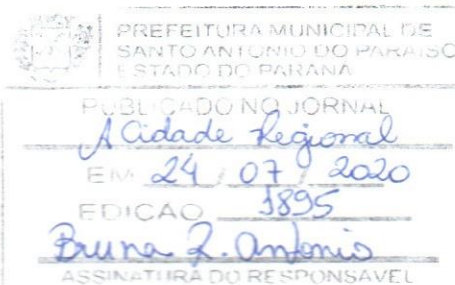 PREFEITURA MUNICIPAL DE
SANTO ANTONIO DO PARAISO
ESTADO DO PARANA
PUBLICADO NO JORNAL
A Cidade Regional
EM 24 / 07 / 2020
EDICAO 1895
Bruna R. Antonio
ASSINATURA DO RESPONSAVEL